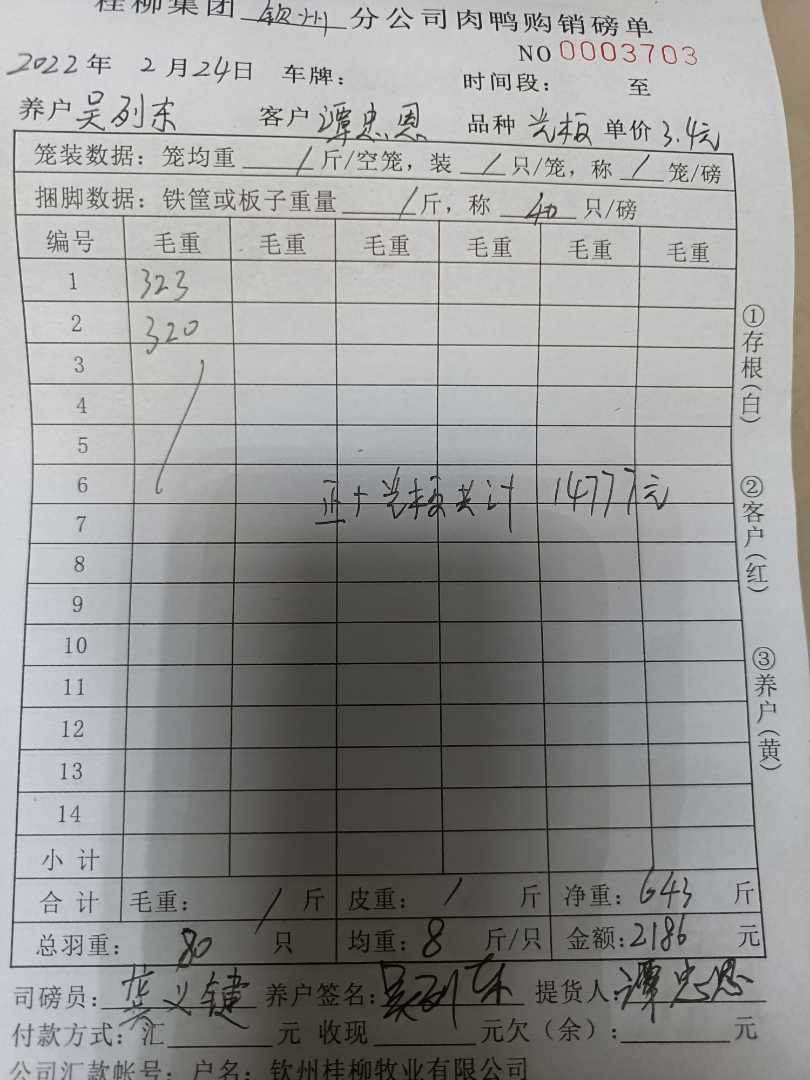 桂柳集团 钦州 分公司肉鸭购销磅单
NO 0003703
2022年 2月24日 车牌: 时间段: 至
养户 吴列东 客户 谭忠恩 品种 光板 单价 3.4元
笼装数据: 笼均重 / 斤/空笼, 装 / 只/笼, 称 / 笼/磅
捆脚数据: 铁筐或板子重量 / 斤, 称 40 只/磅
编号 毛重 毛重 毛重 毛重 毛重 毛重
1 323
2 320
3
4
5
6
正+光板共计 14777元
7
8
9
10
11
12
13
14
小计
合计 毛重: / 斤 皮重: / 斤 净重: 643 斤
总羽重: 80 只 均重: 8 斤/只 金额: 2186 元
司磅员: 义键 养户签名: 吴列东 提货人: 谭忠恩
付款方式: 汇 元 收现 元欠(余): 元
公司汇款帐号: 户名: 钦州桂柳牧业有限公司
①存根(白)
②客户(红)
③养户(黄)